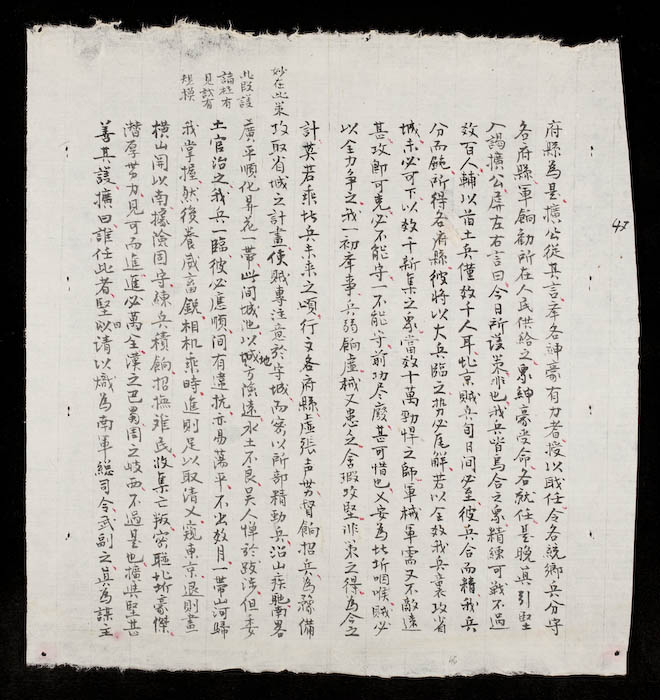 47
府縣為是擴公從其言率各紳豪有力者授以職任令各統鄉兵分守
各府縣軍餉勸所在人民供給之眾紳豪受命各就任是晚蓂引堅
入謁擴公屏左右言曰今日所議策非也我兵皆烏合之眾精練可戰不過
数百人輔以苗土兵僅数千人耳北京賊兵旬日間必至彼兵合而精我兵
分而所得各府縣彼將以大兵臨之势必尾解若以全数我兵裹攻省
城未必可下以数千新集之眾當数十萬勁悍之師軍械軍需又不敵遠
甚攻即可克必不能守一不能守前功尽廢甚可惜也乂安為北圻咽喉賊必
以全力争之我一初牽事兵弱餉虛械又患乏舍瑕攻堅非策之得為今之
計莫若乘北兵未來之頃行文各府縣虛張声势督餉招兵為豫備
妙在此策
攻取省城之計畫使賊專注意於守城而密以所部精勁兵沿山疾馳南畧
此段議
論極有
見識有
規模
廣平順化昇花一帶此間城池以城地方強遠水土不良吳人憚於跋涉但委
土官治之我兵一臨彼必應順間有違抗亦易蕩平不出数月一帶山河歸
我掌握然後養威畜銳相机乘時進則足以取清乂窺東京退則畫
橫山関以南據險固守練兵積餉招撫難民收集亡叛密聯北圻豪傑
潛厚势力見可而進進必萬全漢之巴蜀周之岐西不過是也擴與堅甚
善其議擴曰誰任此者堅曰請以熾為南軍總司令武副之蓂為謀主